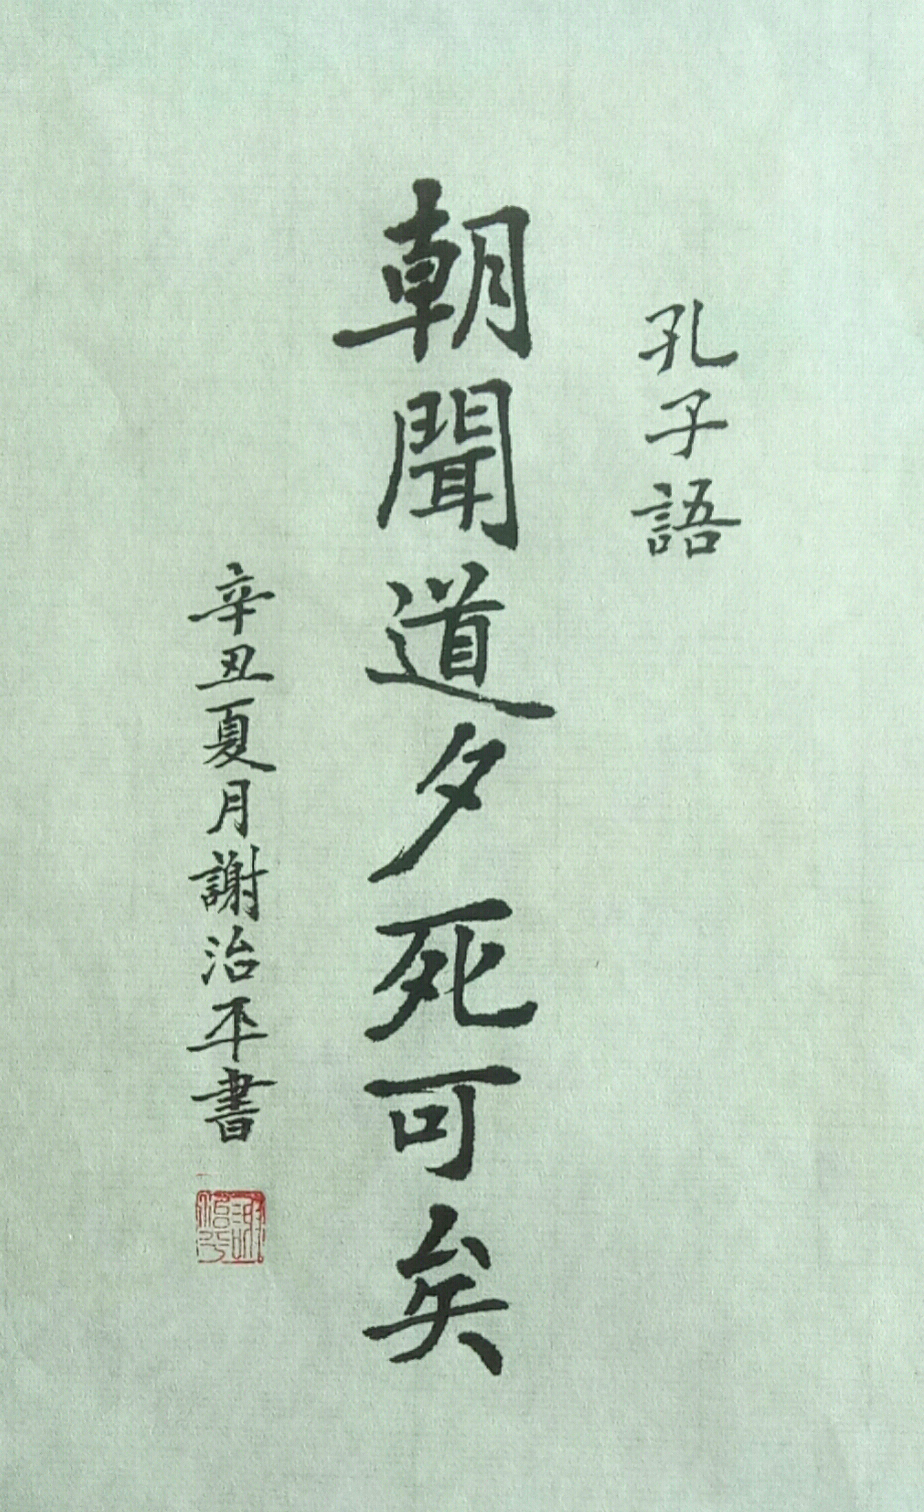 孔子語
朝聞道夕死可矣
辛丑夏月謝治平書
謝治平